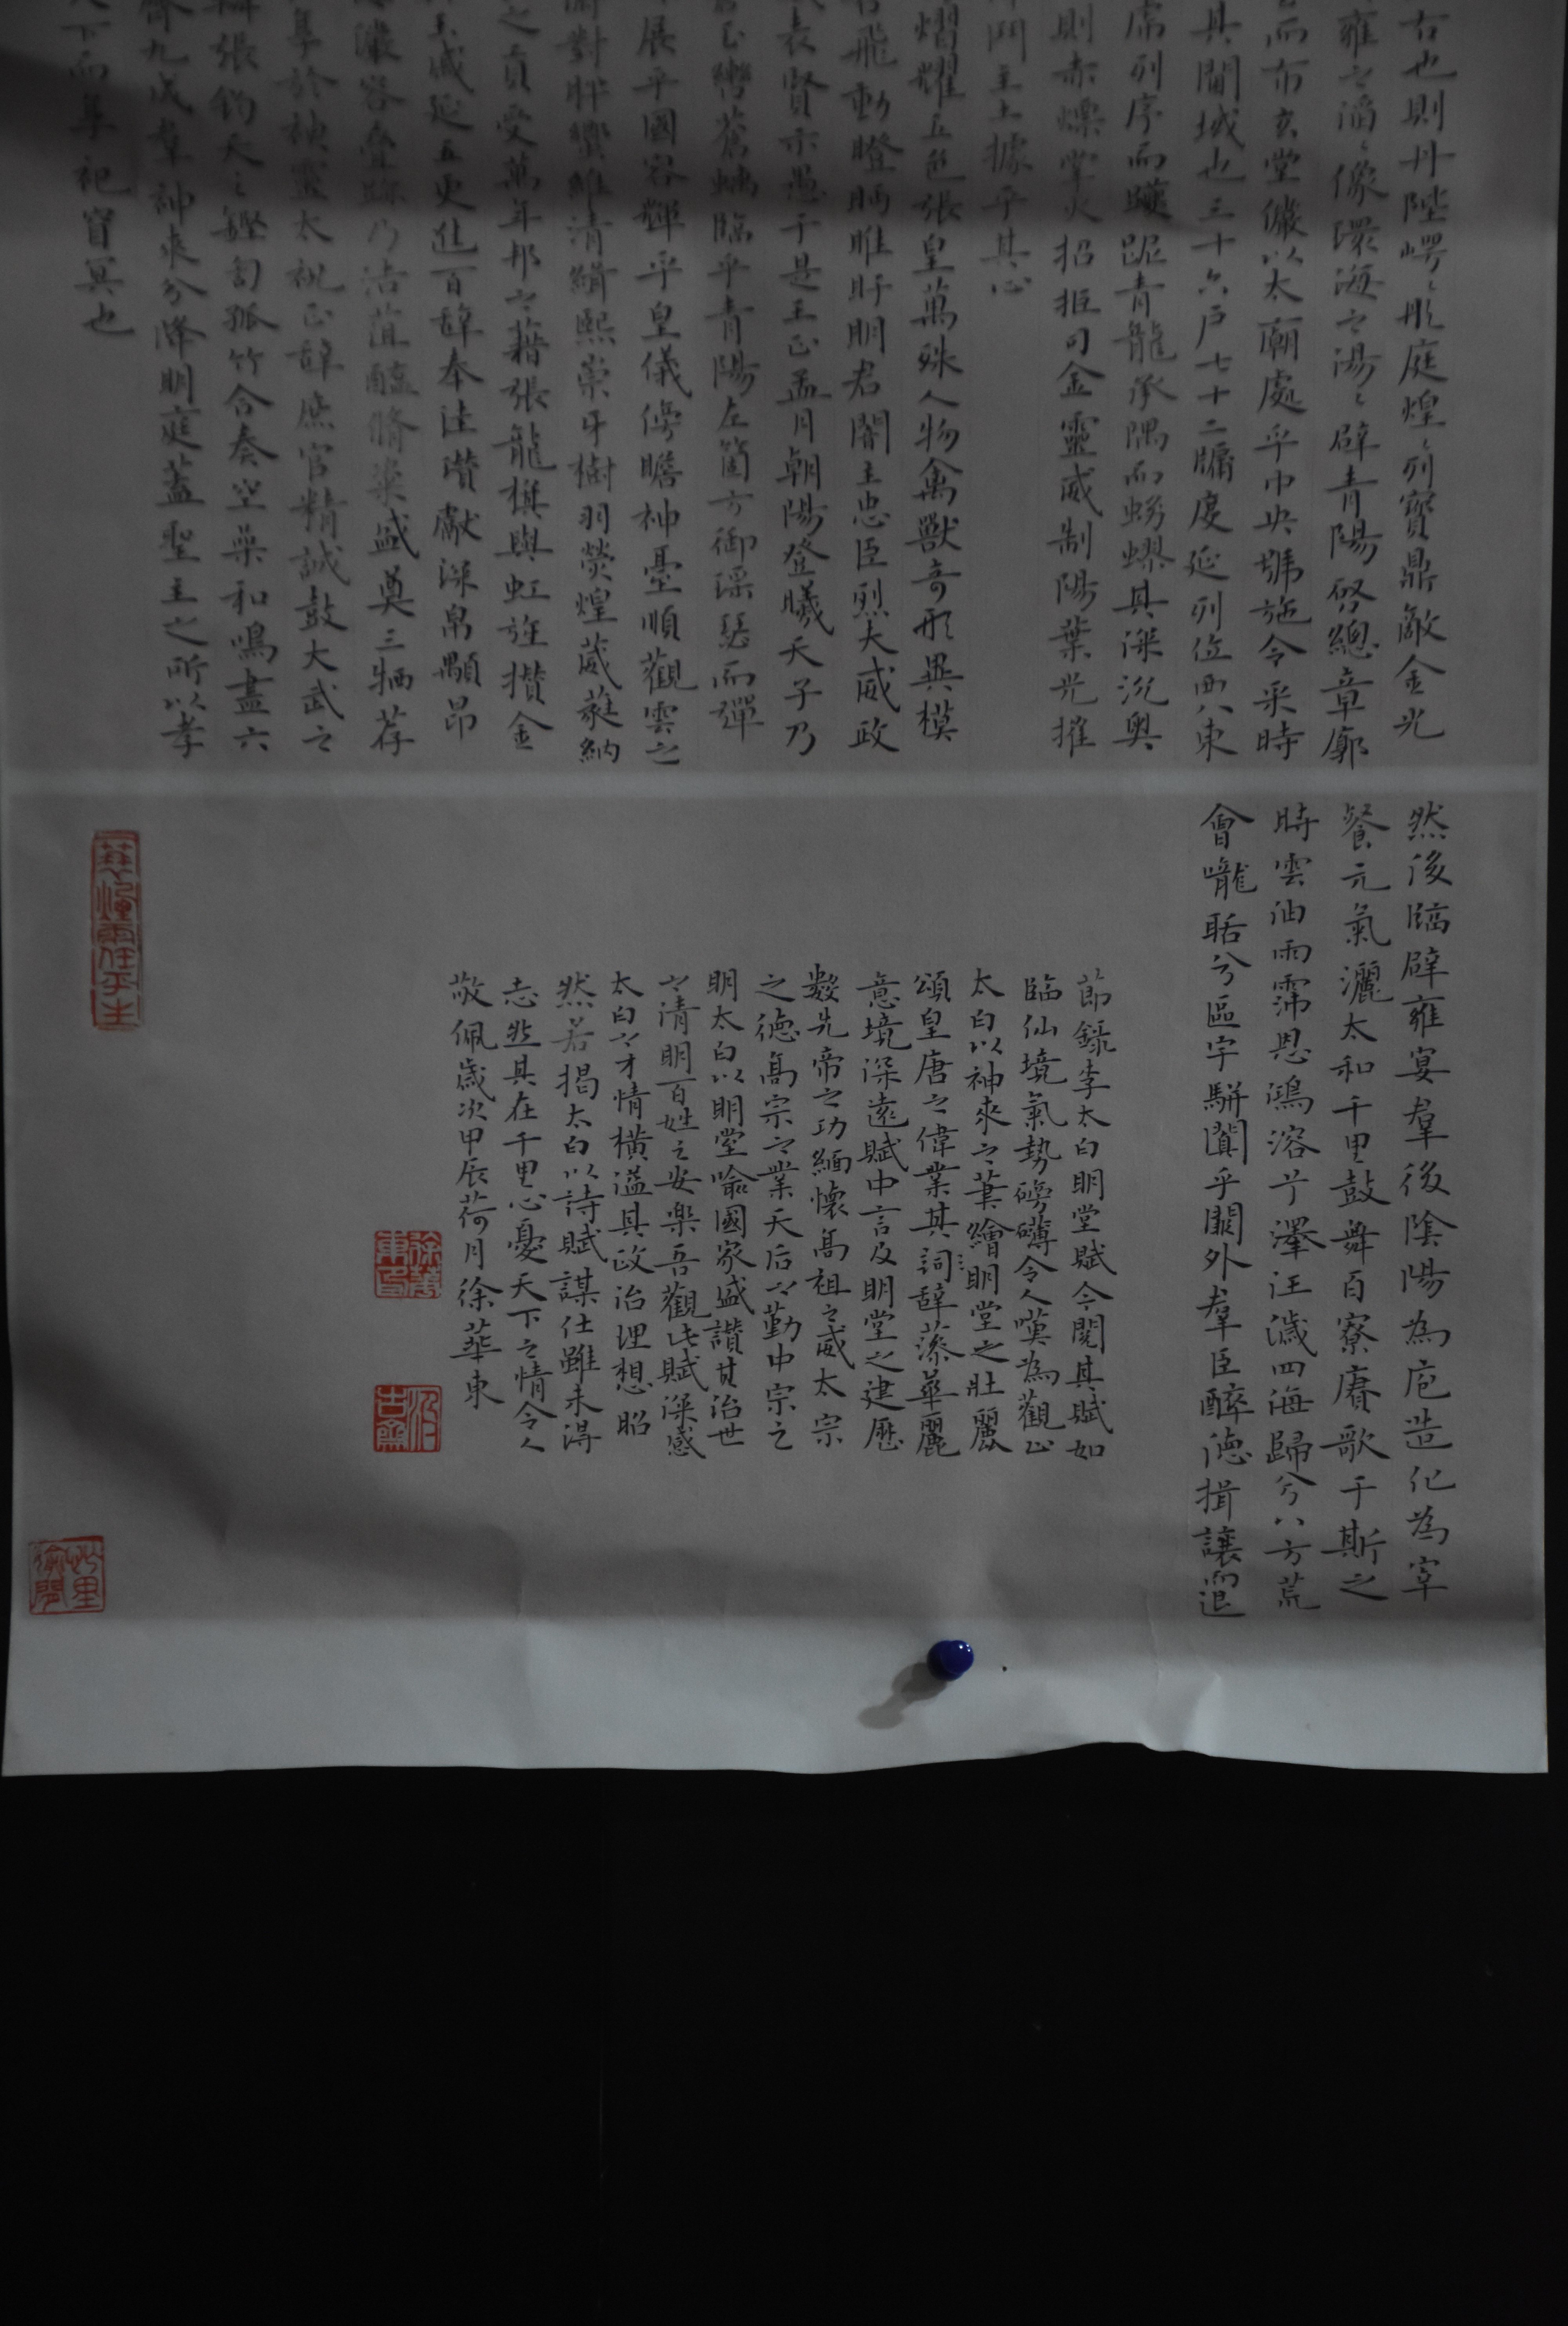 古也則丹陛崿〻彤庭煌〻列寶鼎敵金光
雍之滔〻像環海之湯〻辟青陽啓總章廓
而布玄堂儼以太廟處乎中央號施令采時
其閫域也三十六戶七十二牖度延列位西八東
序列序而躨跜青龍承隅而蚴蟉其深沉奧
則赤熛掌火招拒司金靈威制陽葉光摧
主土據乎其心
熠耀五色張皇萬殊人物禽獸奇形異模
飛動瞪眄睢盱明君闇主忠臣烈夫威政
表賢示愚于是王正孟月朝陽登曦天子乃
玉轡蒼螭臨乎青陽左箇方御瑤瑟而彈
展乎國容輝乎皇儀傍瞻神臺順觀雲之
對胖蠁維清緝熙崇牙樹羽熒煌葳蕤納
之貢受萬年邦之籍張龍旗與虹旌攢金
玉戚延五更進百辟奉珪瓚獻琛帛顒昂
濃容疊跡乃潔菹醢脩粢盛奠三牺荐
享於神靈太祝正辭庶官精誠鼓大武之
張鈞天之鏗訇孤竹合奏空桑和鳴盡六
齊九成羣神來兮降明庭蓋聖主之所以孝
下而享祀窅冥也
然後臨辟雍宴羣後陰陽為庖造化為宰
餐元氣灑太和千里鼓舞百寮賡歌于斯之
時雲油雨霈恩鴻溶兮澤汪濊四海歸兮八方荒
會嚨聒兮區宇駢闐乎闕外羣臣醉德揖讓而退
節錄李太白明堂賦今閱其賦如
臨仙境氣勢磅礴令人嘆為觀止
太白以神來之筆繪明堂之壯麗
頌皇唐之偉業其詞辭藻華麗
意境深遠賦中言及明堂之建歷
數先帝之功緬懷高祖之威太宗
之德高宗之業天后之勤中宗之
明太白以明堂喻國家盛讚其治世
之清明百姓之安樂吾觀此賦深感
太白之才情橫溢其政治理想昭
然若揭太白以詩賦謀仕雖未淂
志然其在千里心憂天下之情令人
敬佩歲次甲辰荷月徐華東